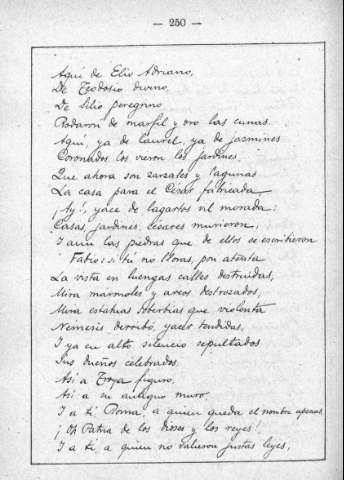 — 250 —
Aquí de Elio Adriano,
De Teodosio divino,
De Silio peregrino
Rodaron de marfil y oro las cunas.
Aquí, ya de laurel, ya de jazmines
Coronados los vieron los jardines.
Que ahora son zarzales y lagunas
La casa para el César fabricada
¡Ay!, yace de lagartos vil morada:
Casas, jardines, césares murieron,
I aun las piedras que de ellos se escribieron
Fabio: si tú no lloras, pon atenta
La vista en luengas calles destruidas,
Mira mármoles y arcos destrozados,
Mira estatuas soberbias que violenta
Nemesis derribó, yacer tendidas,
I ya en alto silencio sepultados
Sus dueños celebrados.
Así a Troya figuro,
Así a su antiguo muro.
I a tí Roma, a quien queda el nombre apenas
¡Oh Patria de los dioses y los reyes!
I a tí, a quien no valieron justas leyes,